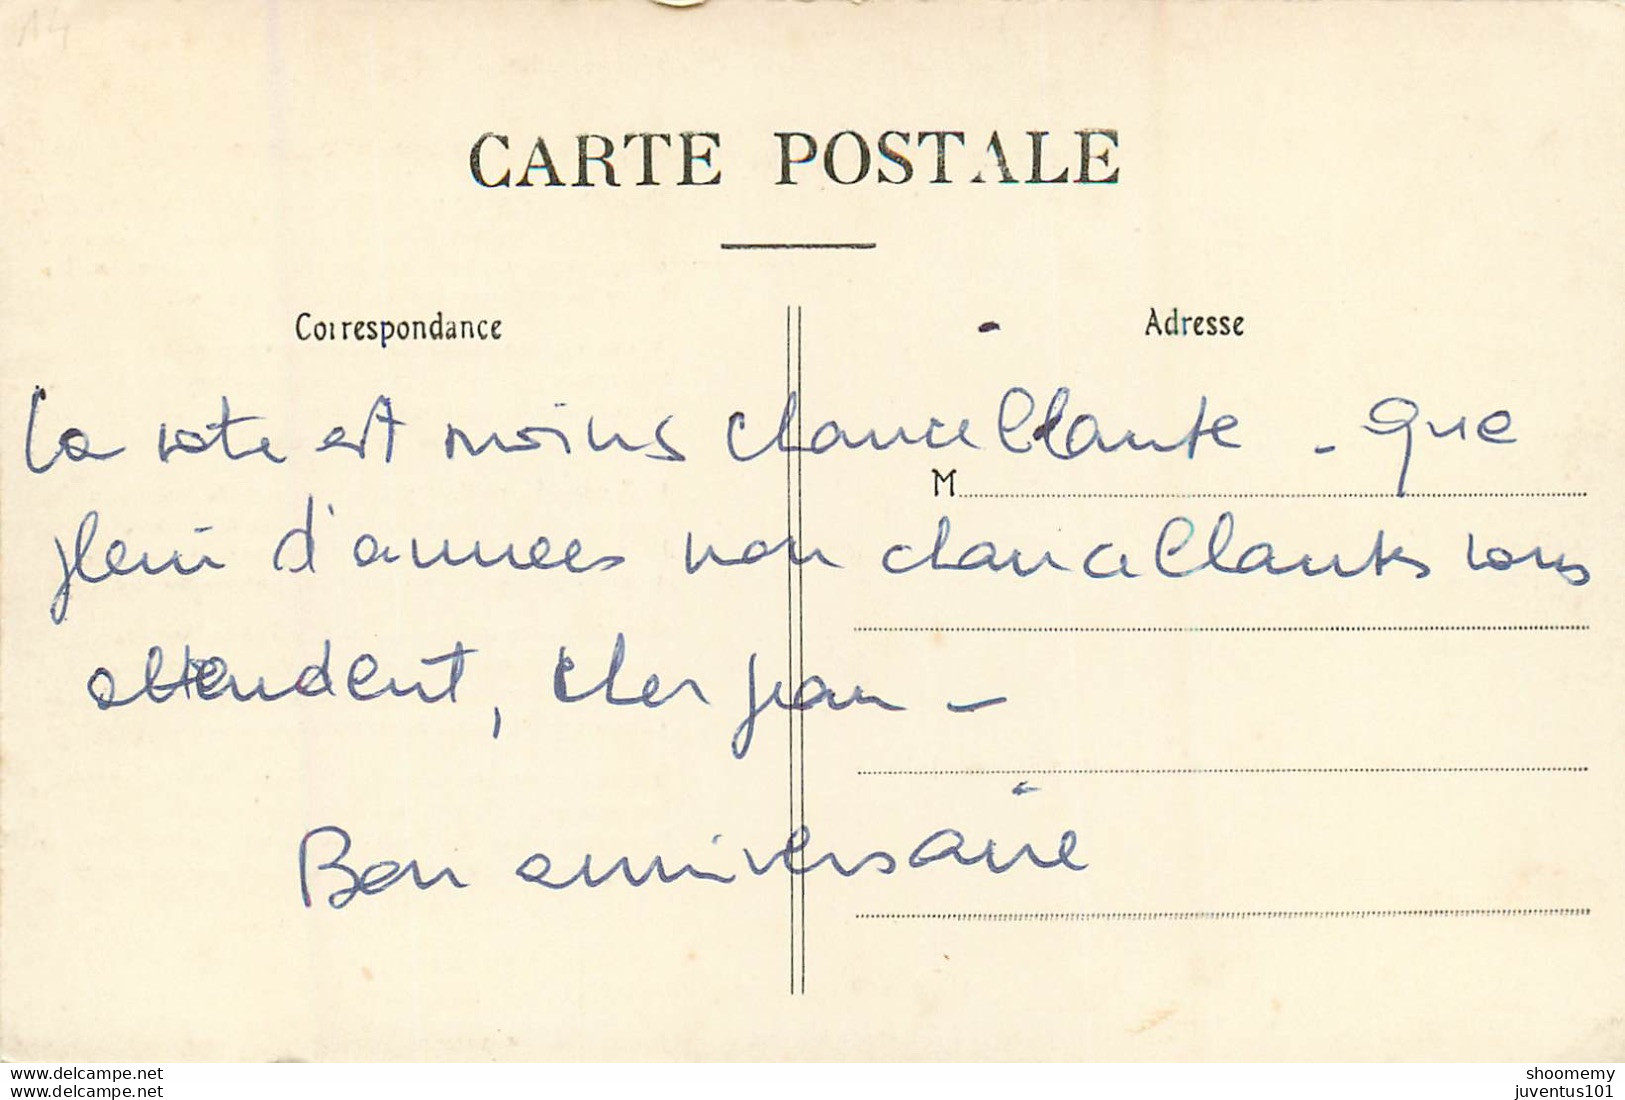 14
CARTE POSTALE
Correspondance
Adresse
La vote est moins chancellante - que
M
plein d'annees non chancellantes vous
attendent, cher jean -
Bon anniversaire
www.delcampe.net
my
www.delcampe.net
shoomemy
juventus101